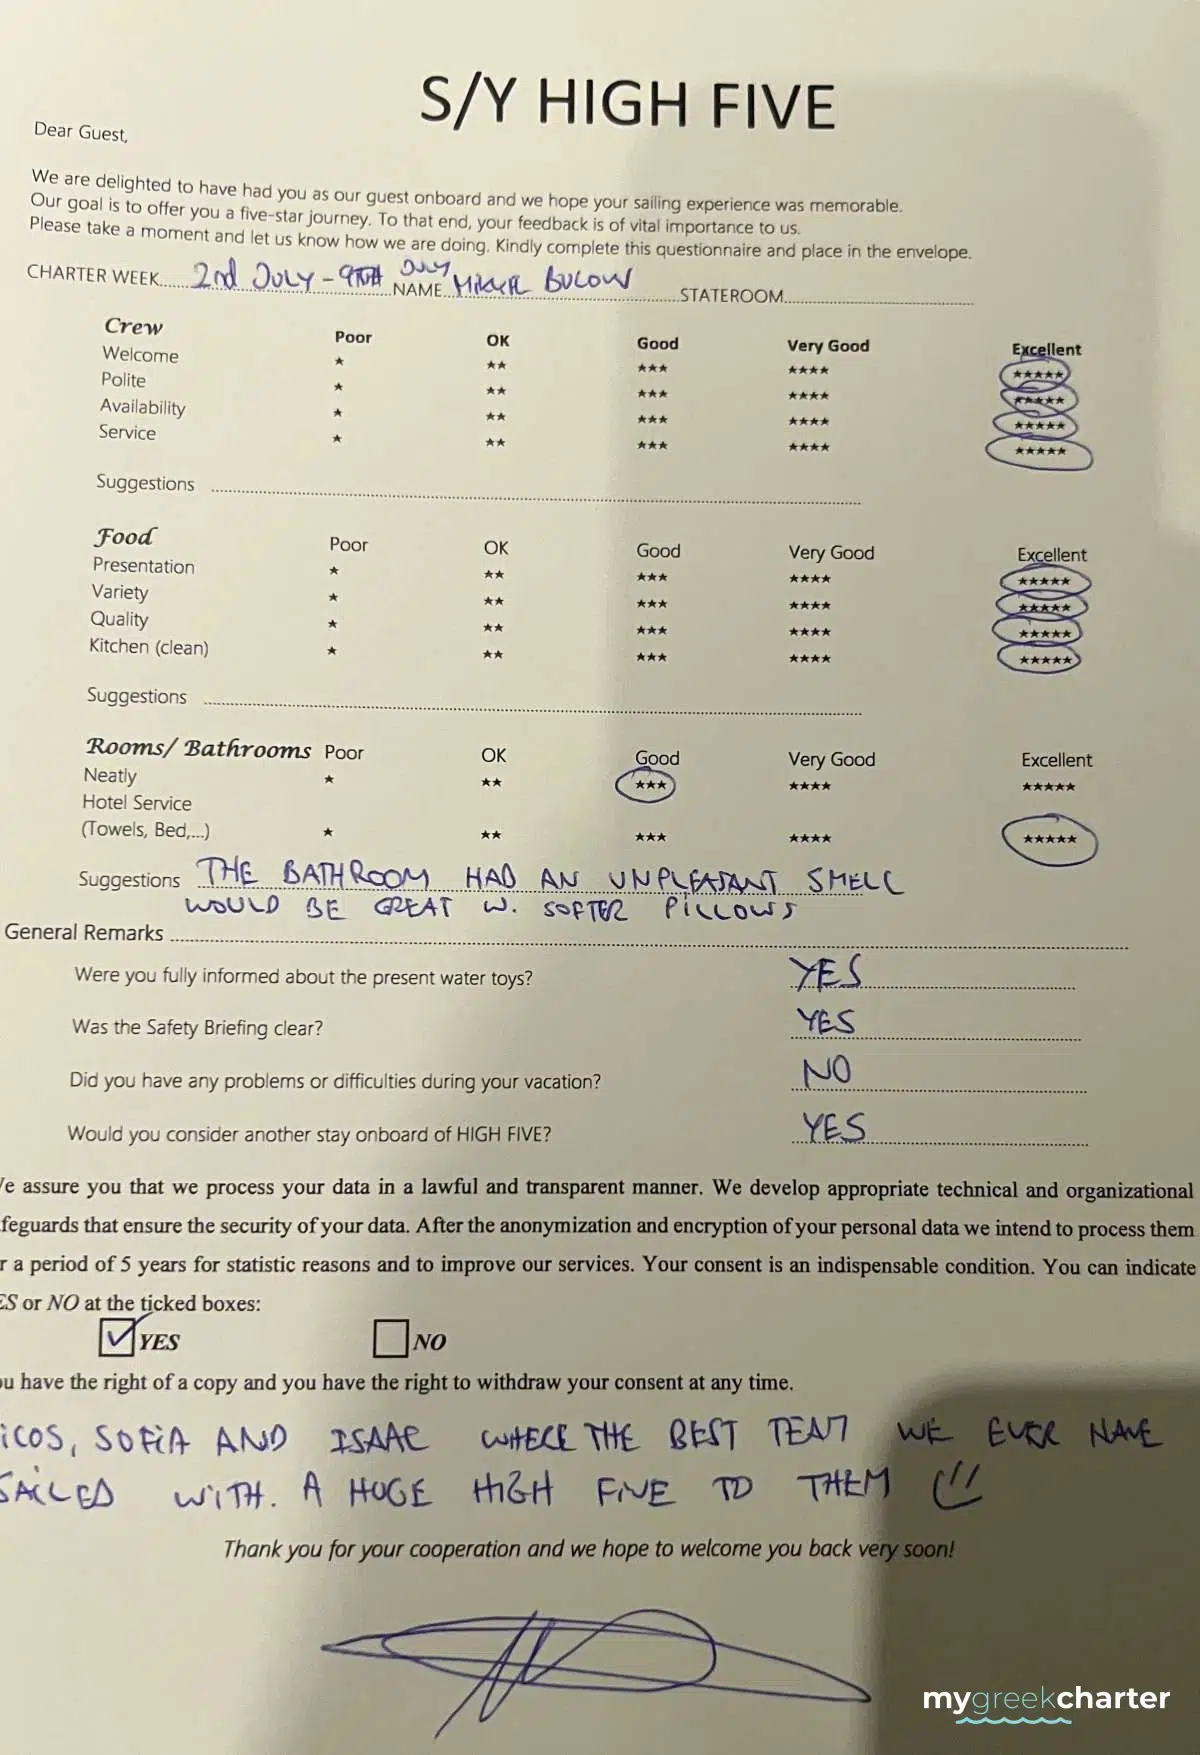 S/Y HIGH FIVE
Dear Guest,
We are delighted to have had you as our guest onboard and we hope your sailing experience was memorable.
Our goal is to offer you a five-star journey. To that end, your feedback is of vital importance to us.
Please take a moment and let us know how we are doing. Kindly complete this questionnaire and place in the envelope.
CHARTER WEEK 2nd JULY - 9TH JULY NAME BULOW STATEROOM
Crew Poor OK Good Very Good Excellent
Welcome ★ ★★ ★★★ ★★★★ ★★★★★
Polite ★ ★★ ★★★ ★★★★ ★★★★★
Availability ★ ★★ ★★★ ★★★★ ★★★★★
Service ★ ★★ ★★★ ★★★★ ★★★★★
Suggestions
Food Poor OK Good Very Good Excellent
Presentation ★ ★★ ★★★ ★★★★ ★★★★★
Variety ★ ★★ ★★★ ★★★★ ★★★★★
Quality ★ ★★ ★★★ ★★★★ ★★★★★
Kitchen (clean) ★ ★★ ★★★ ★★★★ ★★★★★
Suggestions
Rooms/ Bathrooms Poor OK Good Very Good Excellent
Neatly ★ ★★ ★★★ ★★★★ ★★★★★
Hotel Service
(Towels, Bed,...) ★ ★★ ★★★ ★★★★ ★★★★★
Suggestions THE BATHROOM HAD AN UNPLEASANT SMELL
WOULD BE GREAT W. SOFTER PILLOWS
General Remarks
Were you fully informed about the present water toys? YES
Was the Safety Briefing clear? YES
Did you have any problems or difficulties during your vacation? NO
Would you consider another stay onboard of HIGH FIVE? YES
e assure you that we process your data in a lawful and transparent manner. We develop appropriate technical and organizational
feguards that ensure the security of your data. After the anonymization and encryption of your personal data we intend to process them
r a period of 5 years for statistic reasons and to improve our services. Your consent is an indispensable condition. You can indicate
ES or NO at the ticked boxes:
YES NO
ou have the right of a copy and you have the right to withdraw your consent at any time.
iCOS, SOFiA AND ISAAC WHERE THE BEST TEAM WE EVER HAVE
SAILED WiTH. A HUGE HiGH FiVE TO THEM
Thank you for your cooperation and we hope to welcome you back very soon!
mygreekcharter